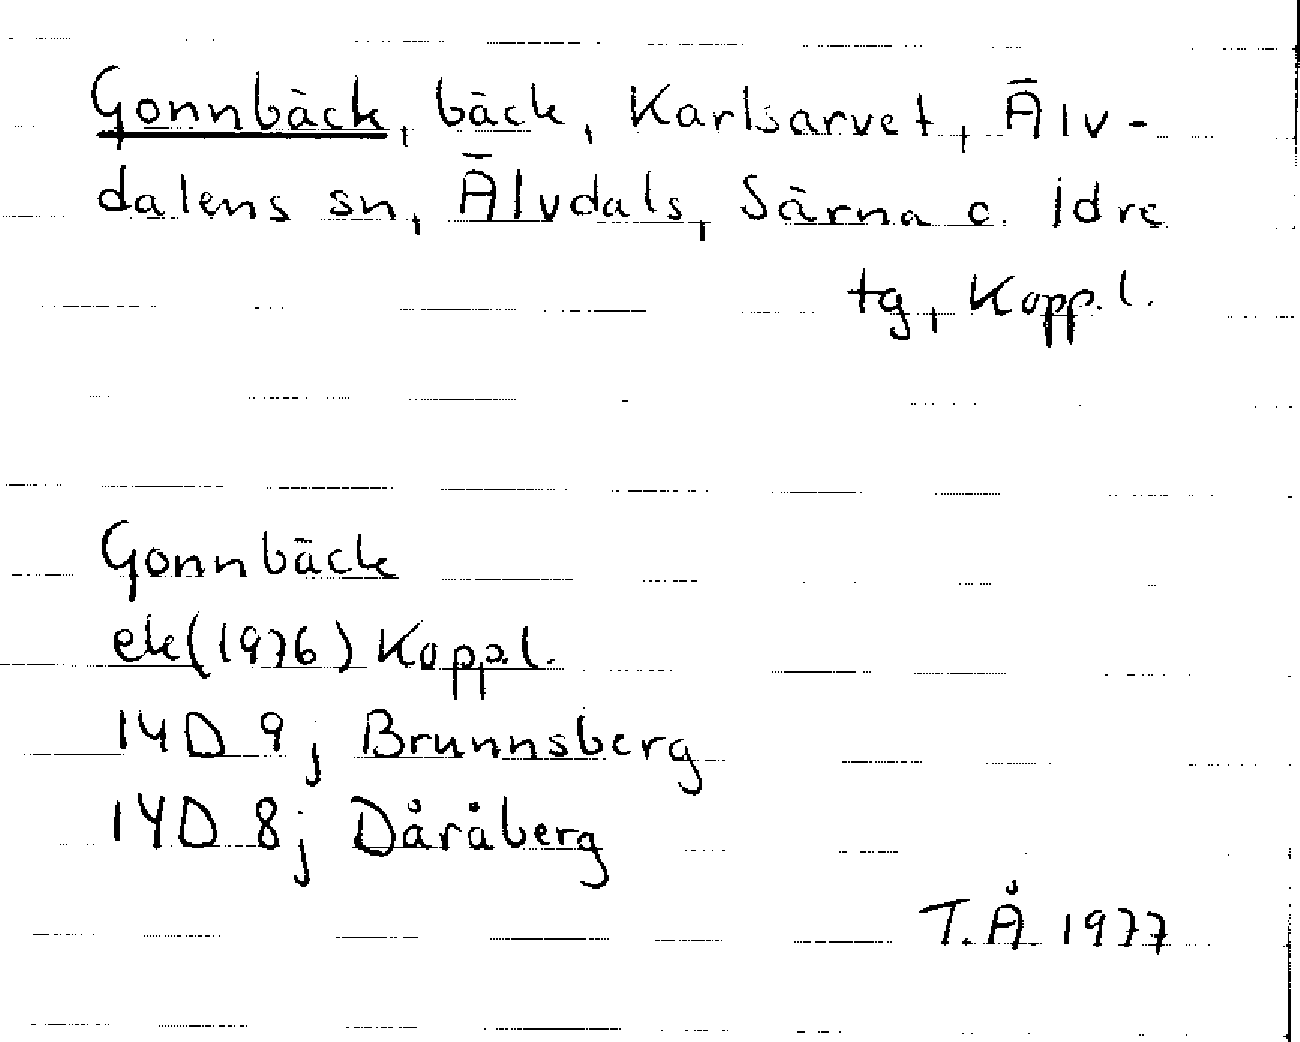 Gonnbäck, bäck, Karlsarvet, Älv-
dalens sn, Älvdals, Särna o. Idre
tg, Kopp.l.
Gonnbäck
ek(1976) Kopp.l.
14D 9j Brunnsberg
14D 8j Dåråberg
T.Å 1977